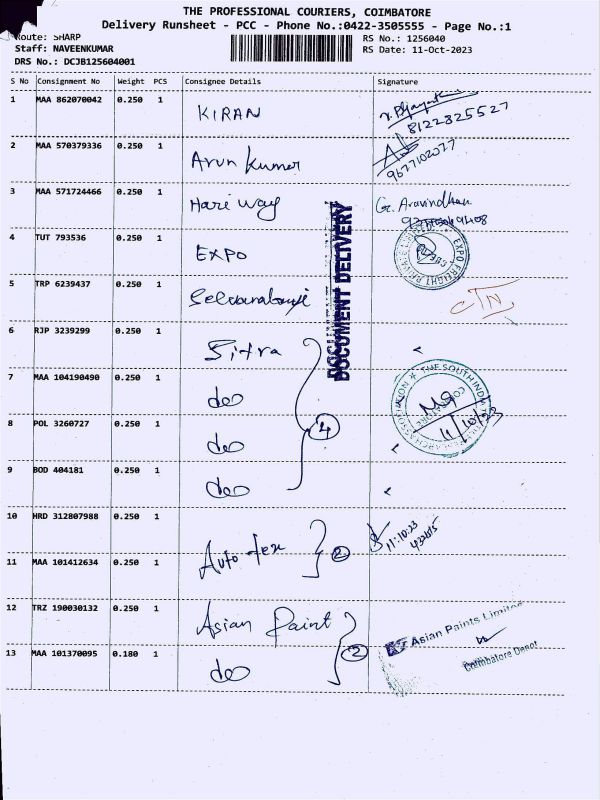 THE PROFESSIONAL COURIERS, COIMBATORE
Delivery Runsheet - PCC - Phone No.:0422-3505555 - Page No.:1
Route: SHARP
RS No.: 1256040
Staff: NAVEENKUMAR
RS Date: 11-Oct-2023
DRS No.: DCJB125604001
S No Consignment No Weight PCS Consignee Details Signature
1 MAA 862070042 0.250 1 KIRAN
8122825527
2 MAA 570379336 0.250 1 Arun Kumar
9677102077
3 MAA 571724466 0.250 1 Hari way Gr. Aravindhan
DOCUMENT DELIVERY
4 TUT 793536 0.250 1 EXPO
EXPO FREIGHT PRIVATE LIMITED
5 TRP 6239437 0.250 1
CTN
6 RJP 3239299 0.250 1 Sitra
7 MAA 104190490 0.250 1 do
THE SOUTH INDIA TEXTILE RESEARCH ASSOCIATION
COIMBATORE
11/10/23
8 POL 3260727 0.250 1 do
4
9 BOD 404181 0.250 1 do
10 HRD 312807988 0.250 1 Auto tex 2
11.10.23
11 MAA 101412634 0.250 1
12 TRZ 190030132 0.250 1 Asian Paint
Asian Paints Limited
Coimbatore Depot
13 MAA 101370095 0.180 1 do 2